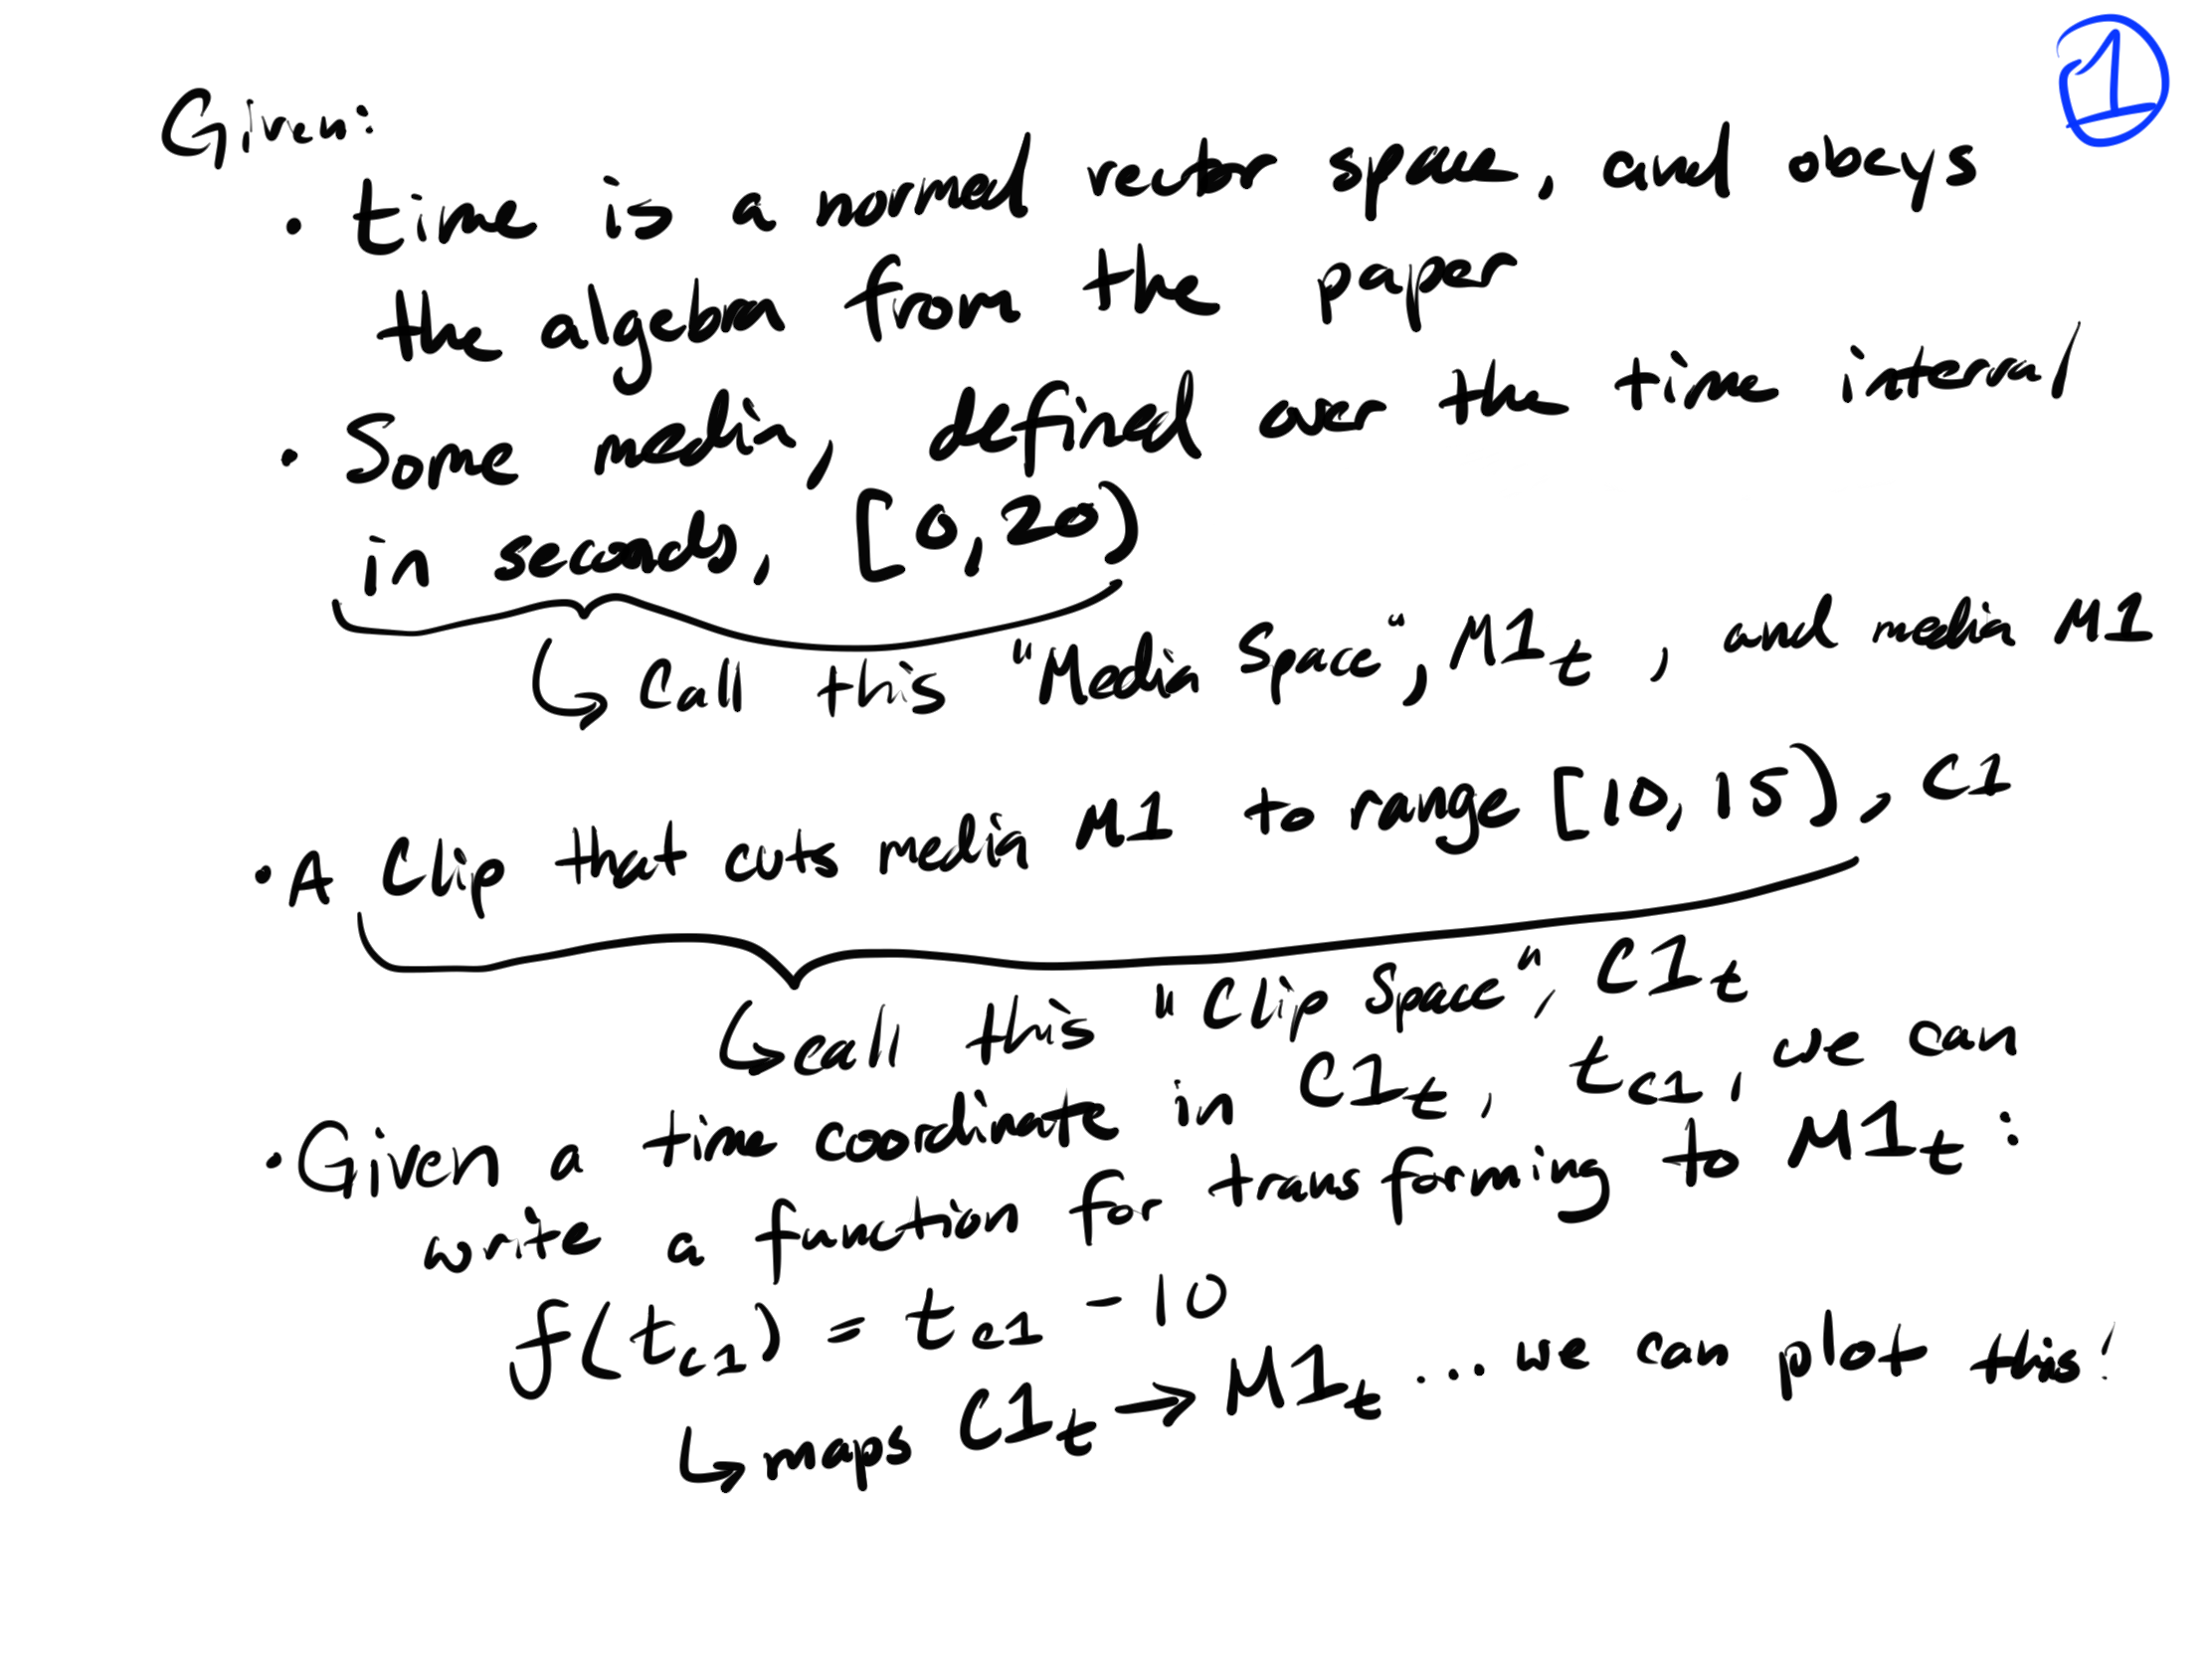 1
Given:
• time is a normed vector space, and obeys
the algebra from the paper
• Some media, defined over the time interval
in seconds, [0,20)
↳ Call this "Media Space", M1t , and media M1
• A Clip that cuts media M1 to range [10,15), C1
↳ call this "Clip Space", C1t
• Given a time coordinate in C1t, tc1, we can
write a function for transforming to M1t:
f(tc1) = tc1 - 10
↳ maps C1t → M1t ... we can plot this!